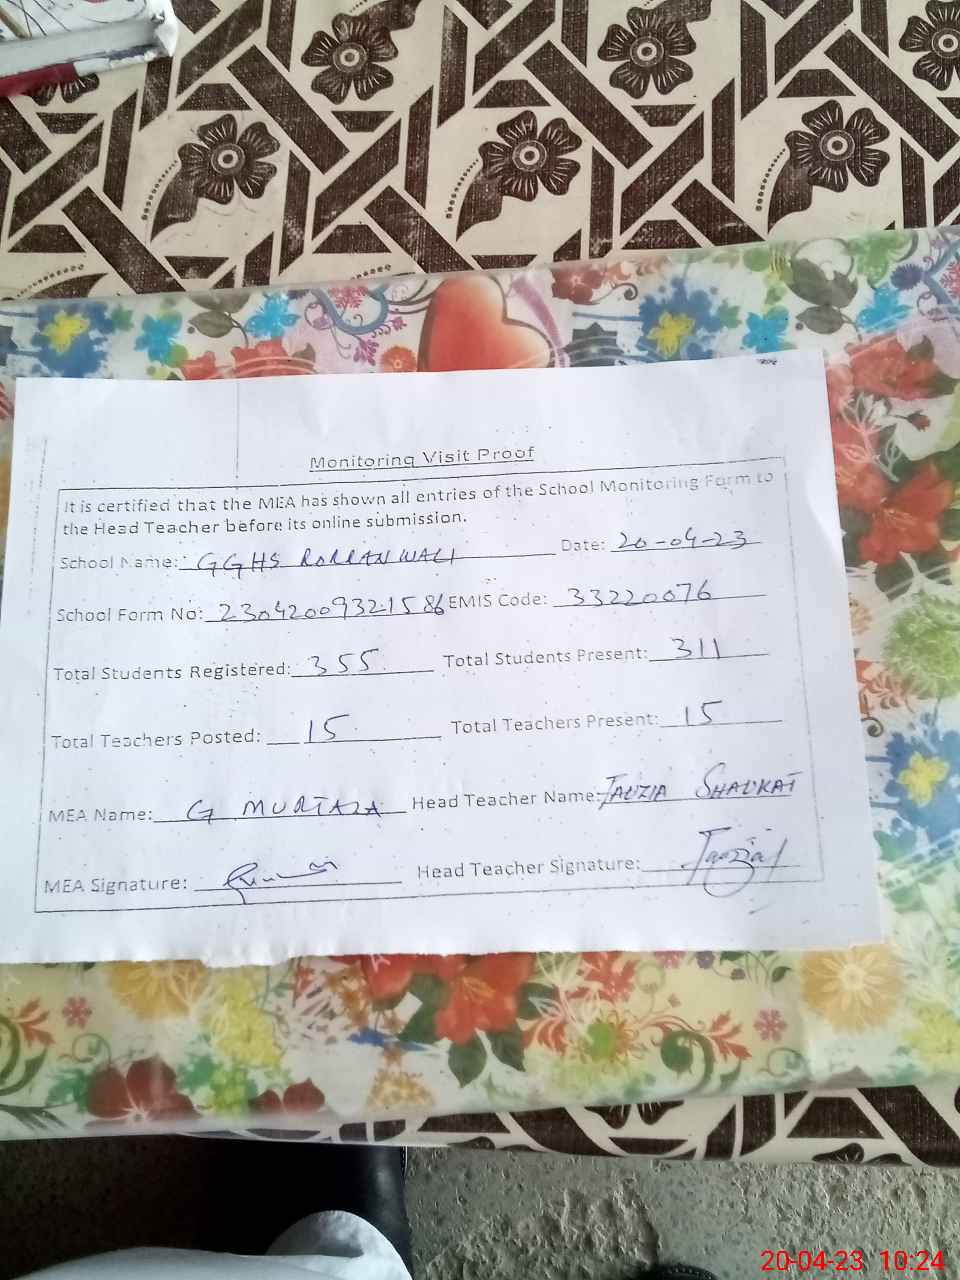 Monitoring Visit Proof
It is certified that the MEA has shown all entries of the School Monitoring Form to
the Head Teacher before its online submission.
School Name: GGHS RORRANWALI Date: 20-04-23
School Form No: 230420093221586 EMIS Code: 33220076
Total Students Registered: 355 Total Students Present: 311
Total Teachers Posted: 15 Total Teachers Present: 15
MEA Name: G MURTAZA Head Teacher Name: FAUZIA SHAUKAT
MEA Signature: Head Teacher Signature: Fauzia
20-04-23 10:24